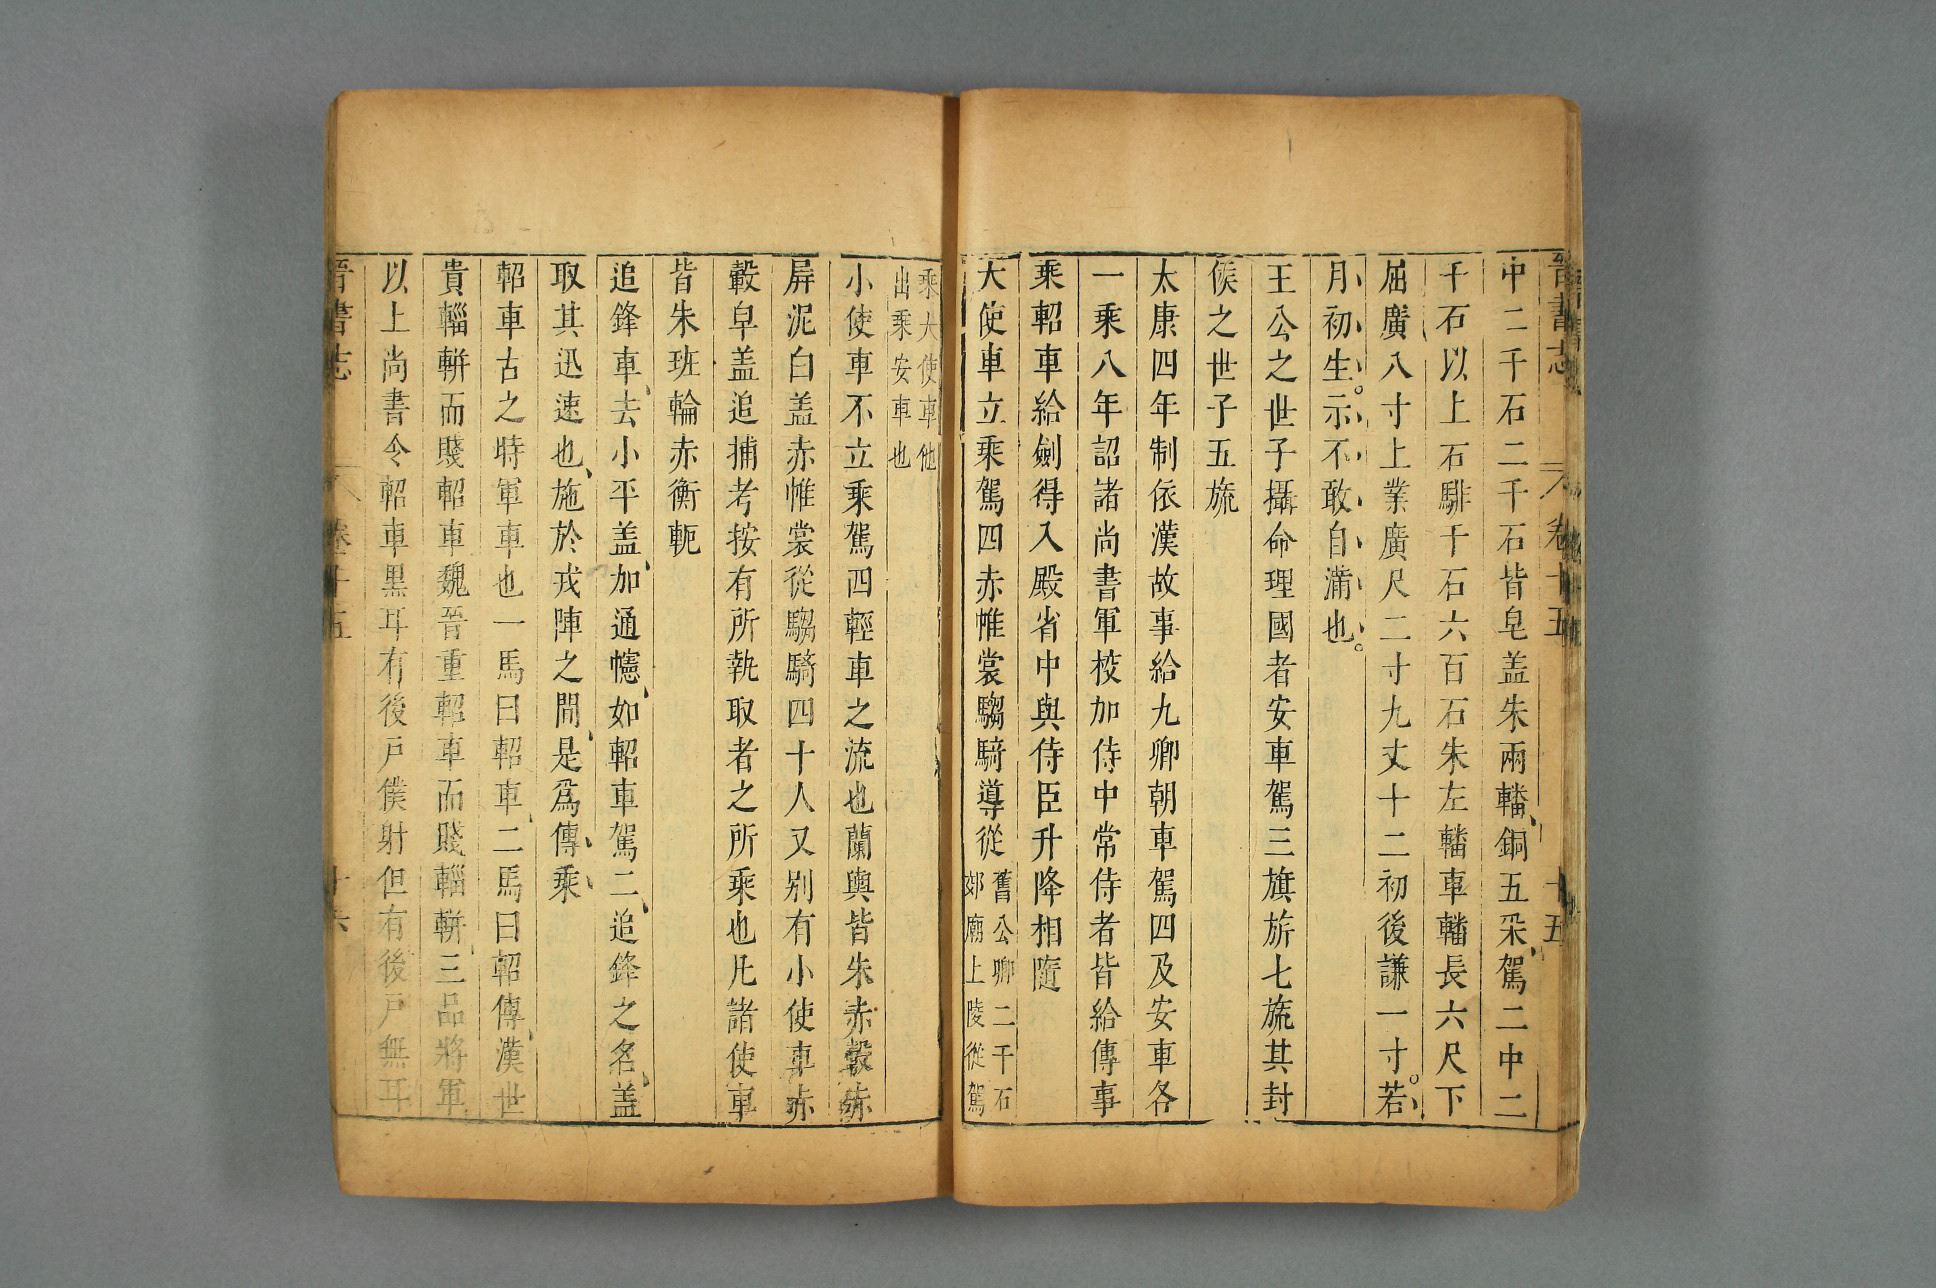 晉書志 卷十五 十五
中二千石二千石皆皂盖朱兩轓銅五采駕二中二
千石以上右騑千石六百石朱左轓車轓長六尺下
屈廣八寸上業廣尺二寸九丈十二初後謙一寸若
月初生。示不敢自滿也。
王公之世子攝命理國者安車駕三旗旂七旒其封
侯之世子五旒
太康四年制依漢故事給九卿朝車駕四及安車各
一乘八年詔諸尚書軍校加侍中常侍者皆給傳事
乘軺車給劍得入殿省中與侍臣升降相隨
大使車立乘駕四赤帷裳騶騎導從舊公卿二千石
郊廟上陵從駕
乘大使車他
出乘安車也
小使車不立乘駕四輕車之流也蘭輿皆朱赤轂赤
屏泥白盖赤帷裳從騶騎四十人又别有小使車赤
轂皁盖追捕考按有所執取者之所乘也凡諸使車
皆朱班輪赤衡軛
追鋒車、去小平盖、加通幰、如軺車駕二、追鋒之名、盖
取其迅速也、施於戎陣之間、是爲傳乘
軺車古之時軍車也一馬曰軺車、二馬曰軺傳、漢世
貴輜軿而賤軺車魏晉重軺車而賤輜軿、三品將軍
以上尚書令軺車黑耳有後戸僕射但有後戸無耳
晉書志 卷十五 十六